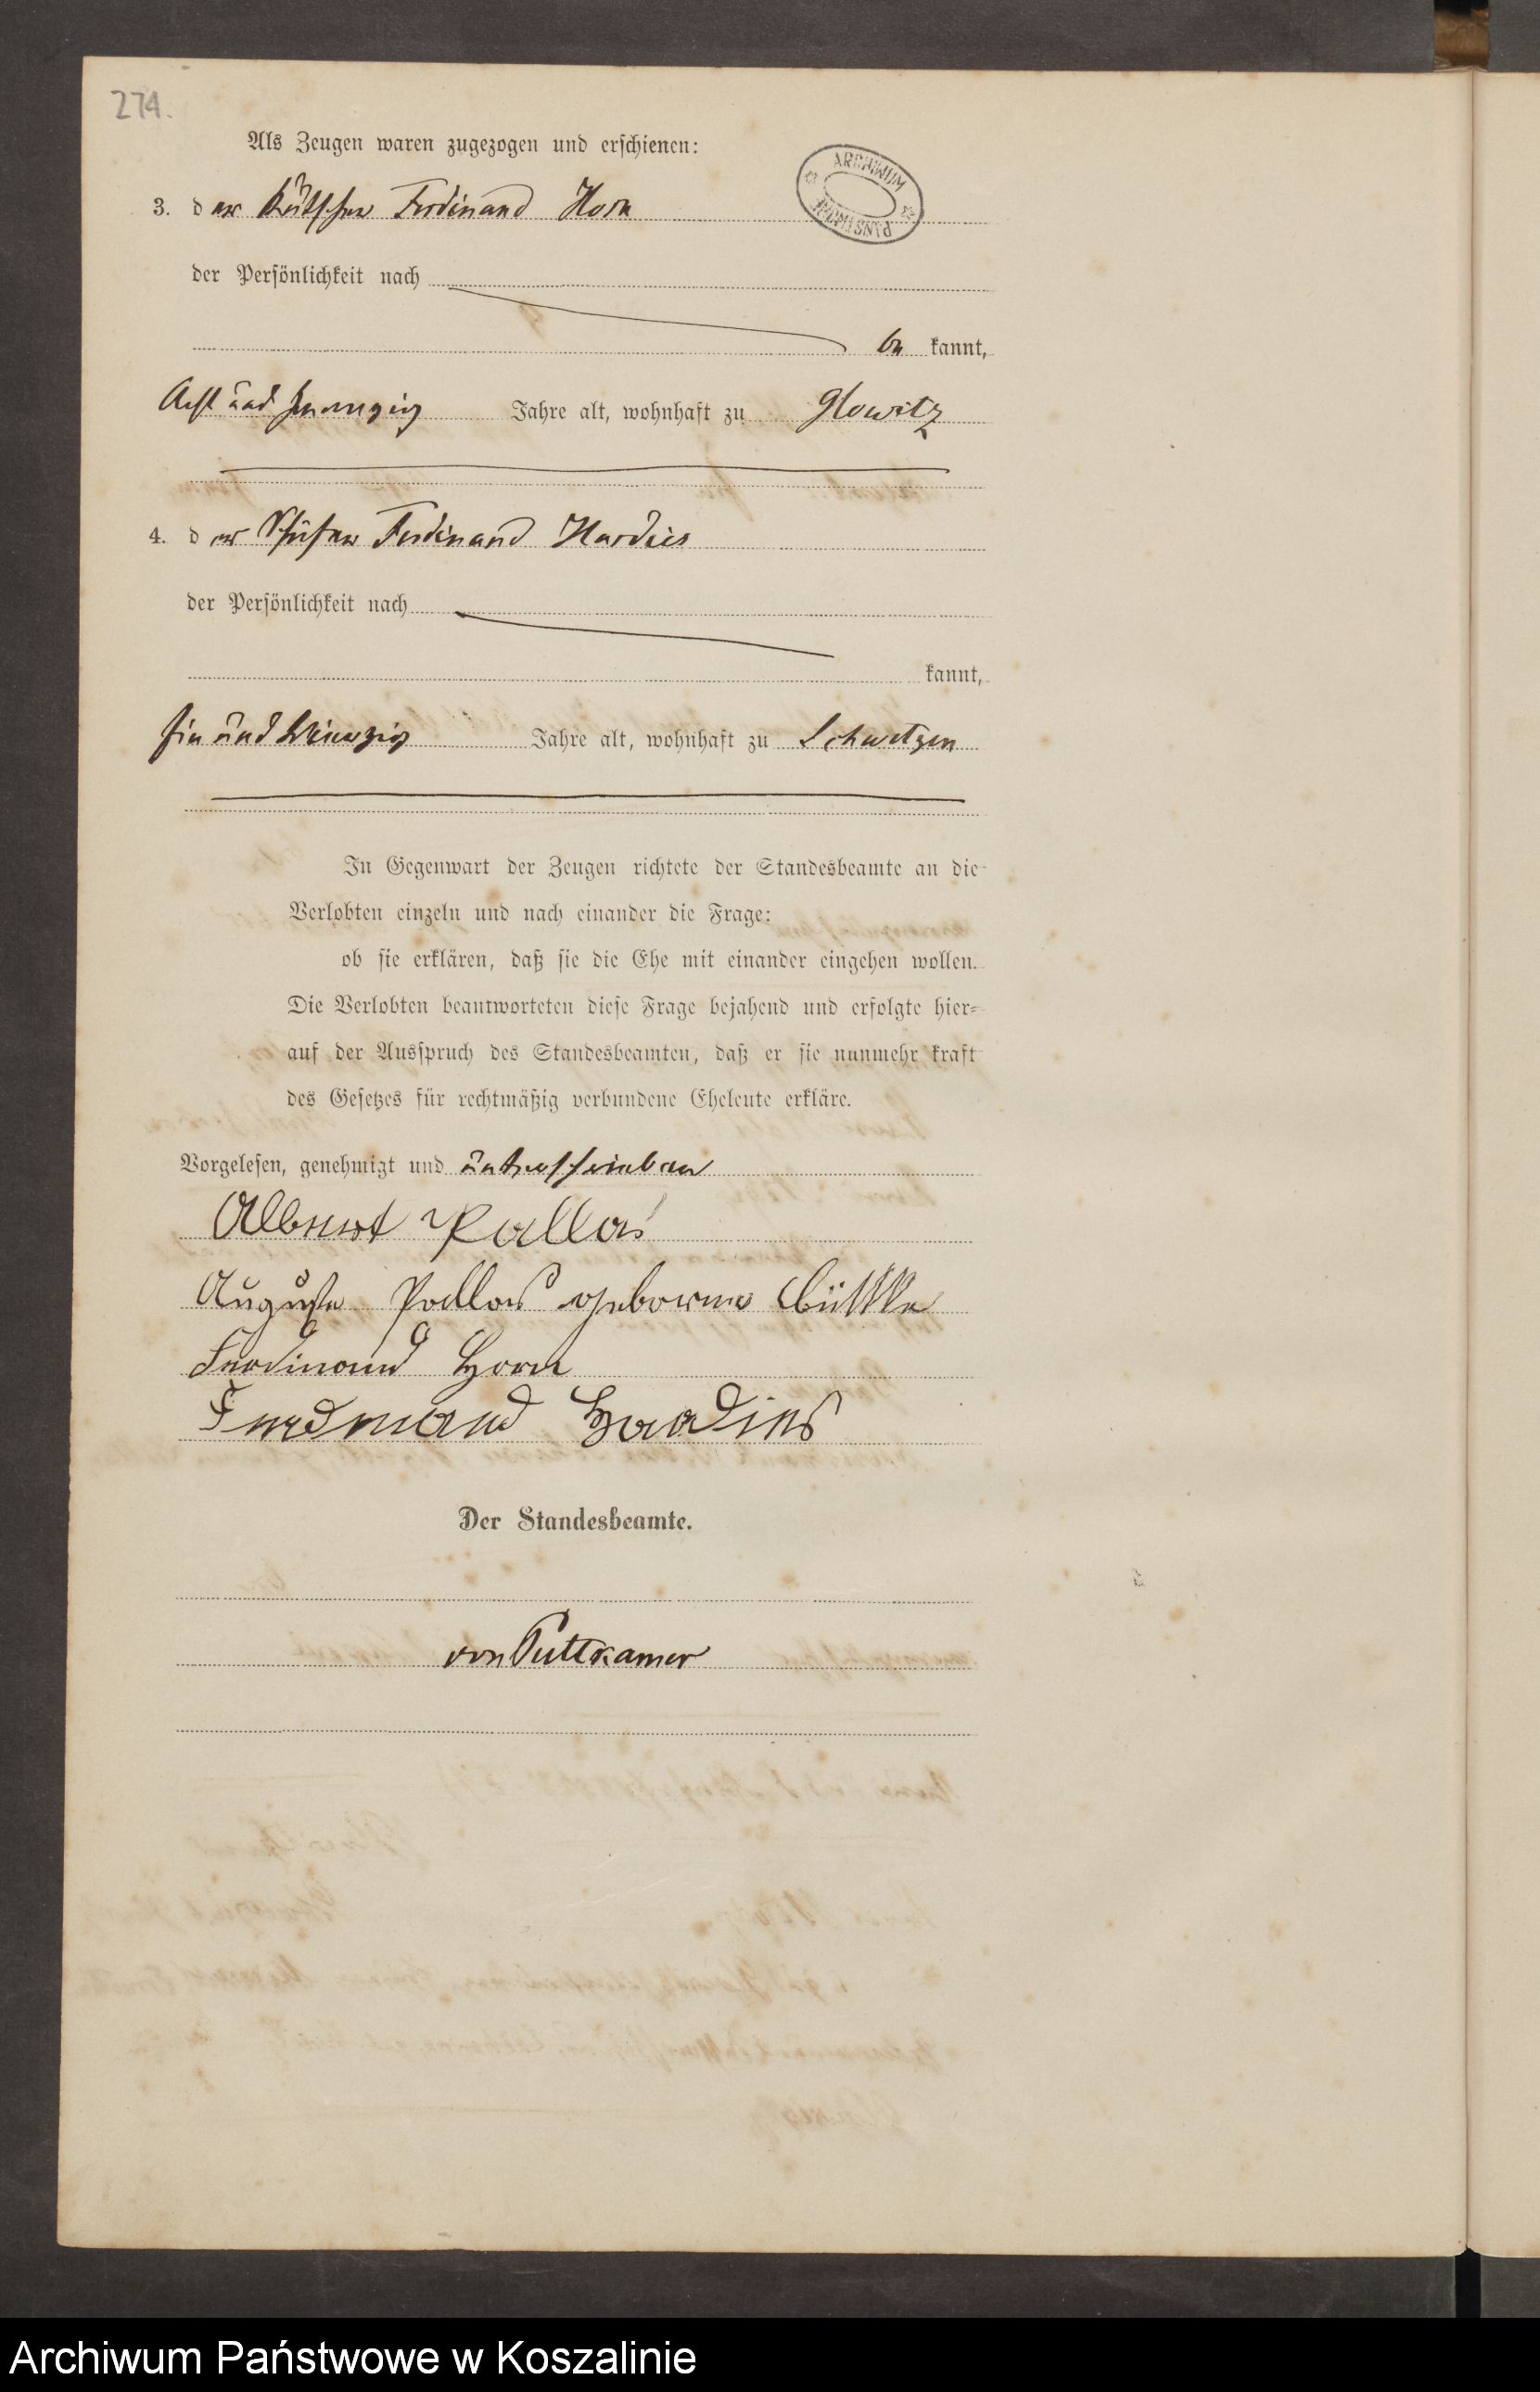 274.
Als Zeugen waren zugezogen und erschienen:
ARCHIWUM PAŃSTWOWE
3. der Kutscher Ferdinand Horn
der Persönlichkeit nach
be kannt,
Acht und zwanzig Jahre alt, wohnhaft zu Glowitz
4. der Schäfer Ferdinand Hardies
der Persönlichkeit nach
kannt,
Ein und Jahre alt, wohnhaft zu Schwetzen
In Gegenwart der Zeugen richtete der Standesbeamte an die
Verlobten einzeln und nach einander die Frage:
ob sie erklären, daß sie die Ehe mit einander eingehen wollen.
Die Verlobten beantworteten diese Frage bejahend und erfolgte hier-
auf der Ausspruch des Standesbeamten, daß er sie nunmehr kraft
des Gesetzes für rechtmäßig verbundene Eheleute erkläre.
Vorgelesen, genehmigt und unterschrieben
Albert Pallas
Auguste Pallas geborene
Ferdinand Horn
Ferdinand Hardies
Der Standesbeamte.
von Puttkamer
Archiwum Państwowe w Koszalinie